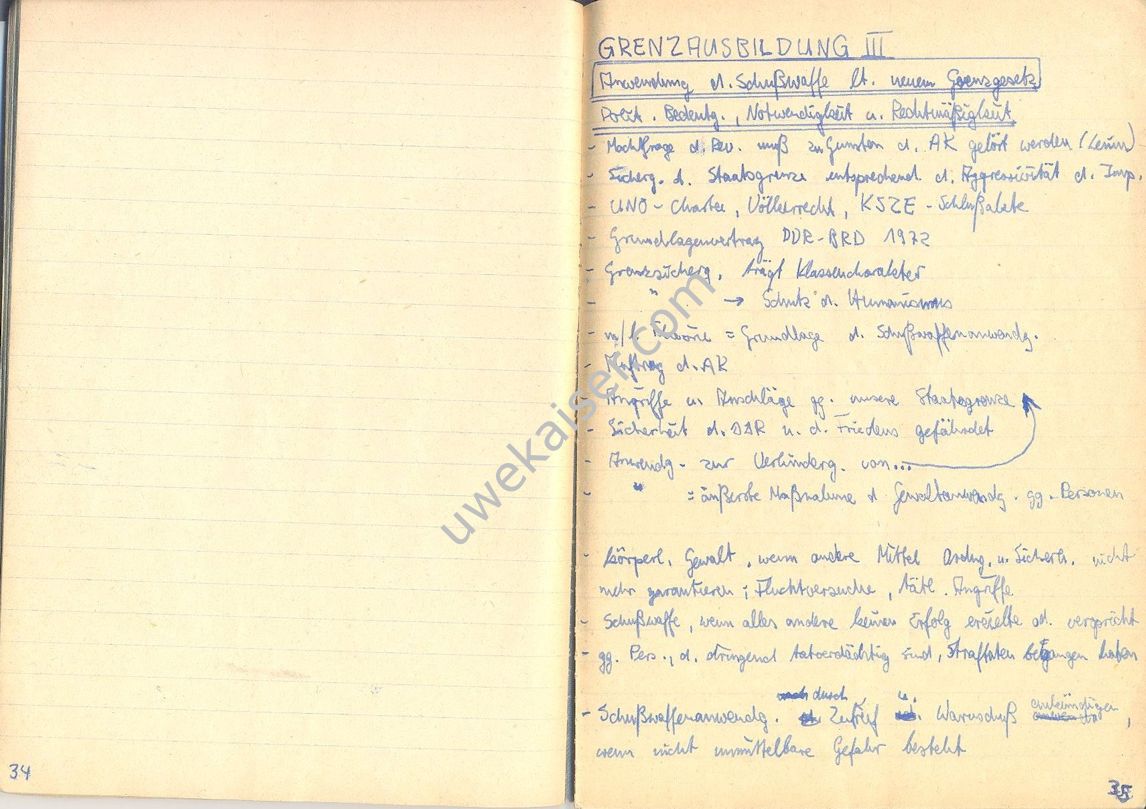 GRENZAUSBILDUNG III
Anwendung d. Schußwaffe lt. neuem Grenzgesetz
Polit. Bedeutg., Notwendigkeit u. Rechtmäßigkeit
- Machtfrage d. Rev. muß zu Gunsten d. AK gelöst werden (Lenin)
- Sicherg. d. Staatsgrenze entsprechend d. Aggressivität d. Imp.
- UNO-Charta, Völkerrecht, KSZE-Schlußakte
- Grundlagenvertrag DDR-BRD 1972
- Grenzsicherg. trägt Klassencharakter
- " → Schutz d. Humanismus
- m/l Theorie = Grundlage d. Schußwaffenanwendg.
- Auftrag d. AK
- Angriffe u. Anschläge gg. unsere Staatsgrenze
- Sicherheit d. DDR u. d. Friedens gefährdet
- Anwendg. zur Verhinderg. von...
- " = äußerste Maßnahme d. Gewaltanwendg. gg. Personen
- körperl. Gewalt, wenn andere Mittel Ordng. u. Sicherh. nicht
mehr garantieren; Fluchtversuche, tätl. Angriffe
- Schußwaffe, wenn alles andere keinen Erfolg erzielte od. verspricht
- gg. Pers., d. dringend tatverdächtig sind, Straftaten begangen haben
durch u.
- Schußwaffenanwendg. Zuruf Warnschuß ankündigen,
wenn nicht unmittelbare Gefahr besteht
34
35
uwekaiser.com